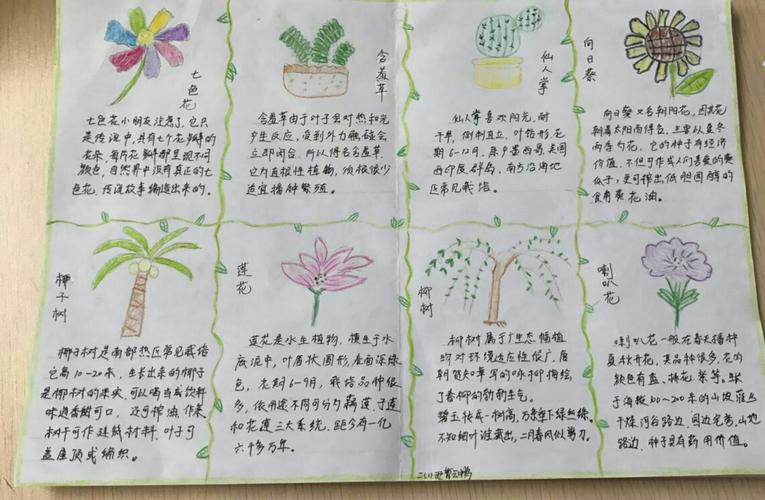 七色花
七色花小朋友注意了,它只
是传说中,具有七个花瓣的
花朵,每片花瓣都呈现不同
颜色,自然界中没有真正的七
色花,传说故事编造出来的。
含羞草
含羞草由于叶子会对热和光
产生反应,受到外力触碰会
立即闭合,所以得名含羞草,
它为直根性植物,须根很少
适宜播钟繁殖。
仙人掌
仙人掌喜欢阳光,耐
干旱,倒刺直立,叶钻形花
期6-12月,原产墨西哥美国
西印度群岛,南方沿海地
区常见栽培。
向日葵
向日葵又名朝阳花,因其花
朝着太阳而得名,
而季为花,它的种子有经济
价值,不但可作成人们喜爱的葵
瓜子,更可榨出低胆固醇的
食用葵花油。
椰子树
椰子树是南部热区常见栽培
它高10-20米,生长出来的椰子
是椰树的果实,可以喝当成饮料
味道香甜可口,还可榨油,作菜
树干可作建筑材料,叶子可
盖屋顶或编织。
莲花
莲花是水生植物,横生于水
底泥中,叶盾状圆形,表面深绿
色,花期6-9月,栽培品种很
多,依用途不同可分为藕莲、子莲
和花莲三大系统,距今有一亿
六千多万年。
柳树
柳树属于广生态幅植
物对环境适应性很广,唐
朝贺知章写的咏柳描绘
了春柳的勃勃生气。
碧玉妆成一树高,万条垂下绿丝绦。
不知细叶谁裁出,二月春风似剪刀。
喇叭花
喇叭花一般在春天播种
夏秋开花,其品种很多,花的
颜色有蓝、桃花、紫等。
于海拔100~200米的山坡
干燥河谷路边、园边宅旁、山地
路边,种子具有药用价值。